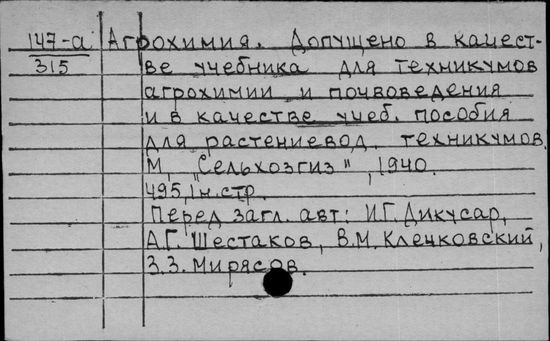 147-а Агрохимия. Допущено в качест-
315 ве учебника для техникумов
агрохимии и почвоведения
и в качестве учеб. пособия
для растениевод. техникумов.
М, "Сельхозгиз", 1940.
495,1н.стр.
Перед загл. авт: И.Г.Дикусар,
А.Г. Шестаков, В.М. Клечковский,
З.З. Мирясов.